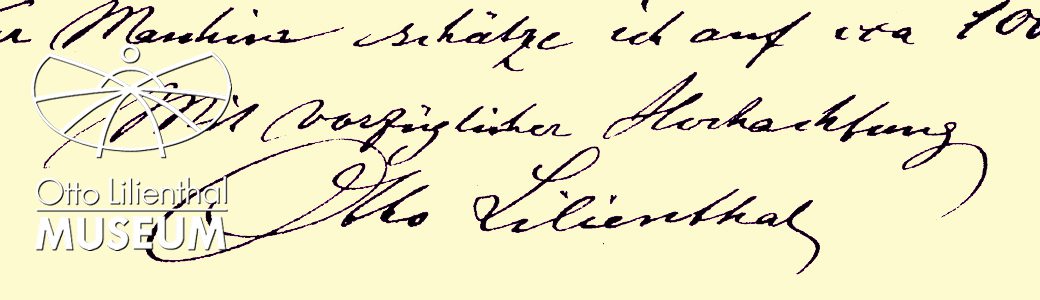 Maschine schätze ich auf etwa 100
Mit vorzüglicher Hochachtung
Otto Lilienthal
Otto Lilienthal
MUSEUM